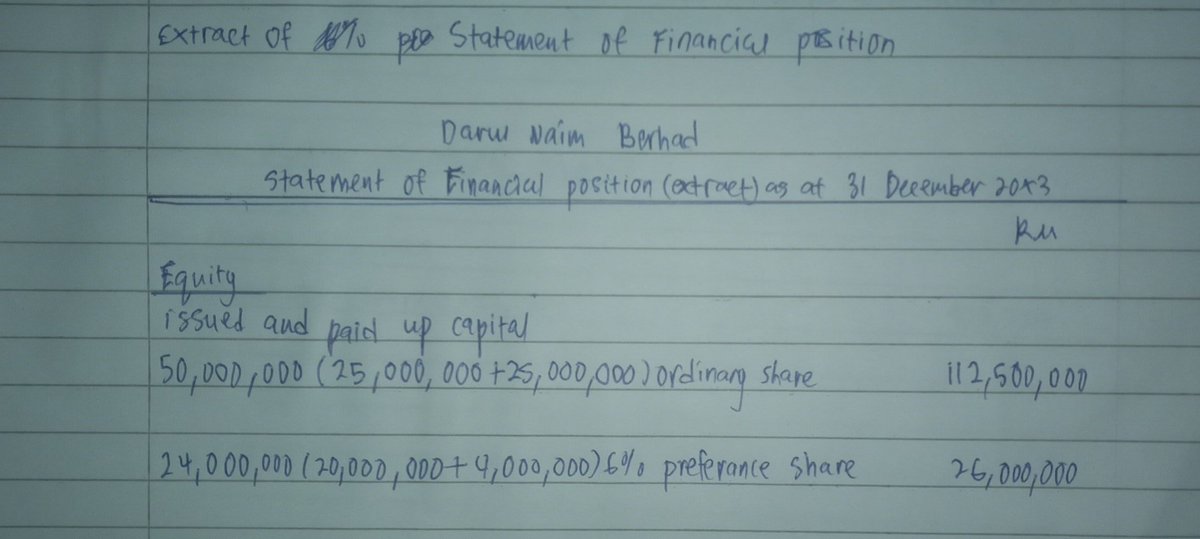 Extract of Statement of Financial position
Darul Naim Berhad
Statement of Financial position (extract) as at 31 December 20x3
RM
Equity
issued and paid up capital
50,000,000 (25,000,000 + 25,000,000) ordinary share 112,500,000
24,000,000 (20,000,000 + 4,000,000) 6% preferance share 26,000,000